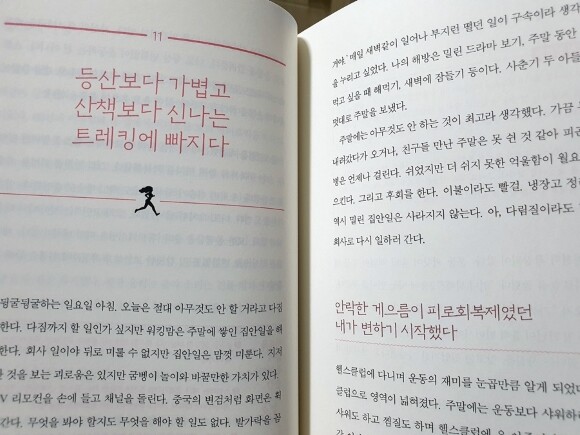 11
등산보다 가볍고
산책보다 신나는
트레킹에 빠지다
뒹굴뒹굴하는 일요일 아침. 오늘은 절대 아무것도 안 할 거라고 다짐
한다. 다짐까지 할 일인가 싶지만 워킹맘은 주말에 쌓인 집안일을 해
한다. 회사 일이야 뒤로 미룰 수 없지만 집안일은 맘껏 미룬다. 지저
것을 보는 괴로움은 있지만 굼벵이 놀이와 바꿀만한 가치가 있다.
V 리모컨을 손에 들고 채널을 돌린다. 중국의 변검처럼 화면은 휙
간다. 무엇을 봐야 할지도 무엇을 해야 할 일도 없다. 발가락을 꼼
거야.' 매일 새벽같이 일어나 부지런 떨던 일이 구속이라 생각
을 누리고 싶었다. 나의 해방은 밀린 드라마 보기, 주말 동안
먹고 싶을 때 해먹기, 새벽에 잠들기 등이다. 사춘기 두 아들
멋대로 주말을 보냈다.
주말에는 아무것도 안 하는 것이 최고라 생각했다. 가끔
내려갔다가 오거나, 친구들 만난 주말은 못 쉰 것 같아 피로
병은 언제나 걸린다. 쉬었지만 더 쉬지 못한 억울함이 월요
으킨다. 그리고 후회를 한다. 이불이라도 빨걸, 냉장고 정
역시 밀린 집안일은 사라지지 않는다. 아, 다림질이라도
회사로 다시 일하러 간다.
안락한 게으름이 피로회복제였던
내가 변하기 시작했다
헬스클럽에 다니며 운동의 재미를 눈곱만큼 알게 되었다
클럽으로 영역이 넓혀졌다. 주말에는 운동보다 샤워하러
사위도 하고 찜질도 하며